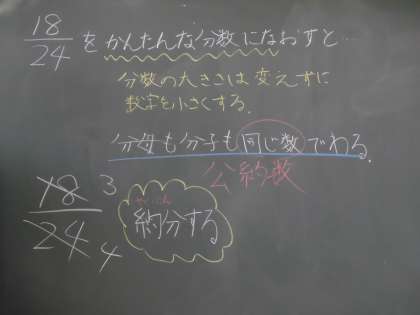 18/24 をかんたんな分数になおすと…
分数の大きさは変えずに
数字を小さくする.
分母も分子も同じ数でわる.
公約数
18 3
24 4
やくぶん
約分する